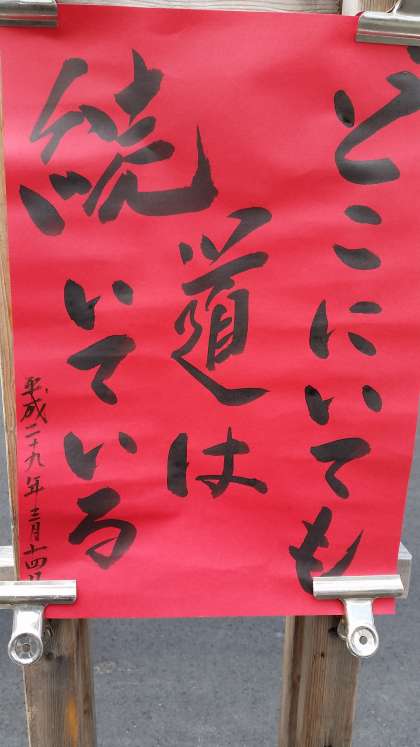 どこにいても
道は
続いている
平成二十九年三月十四日